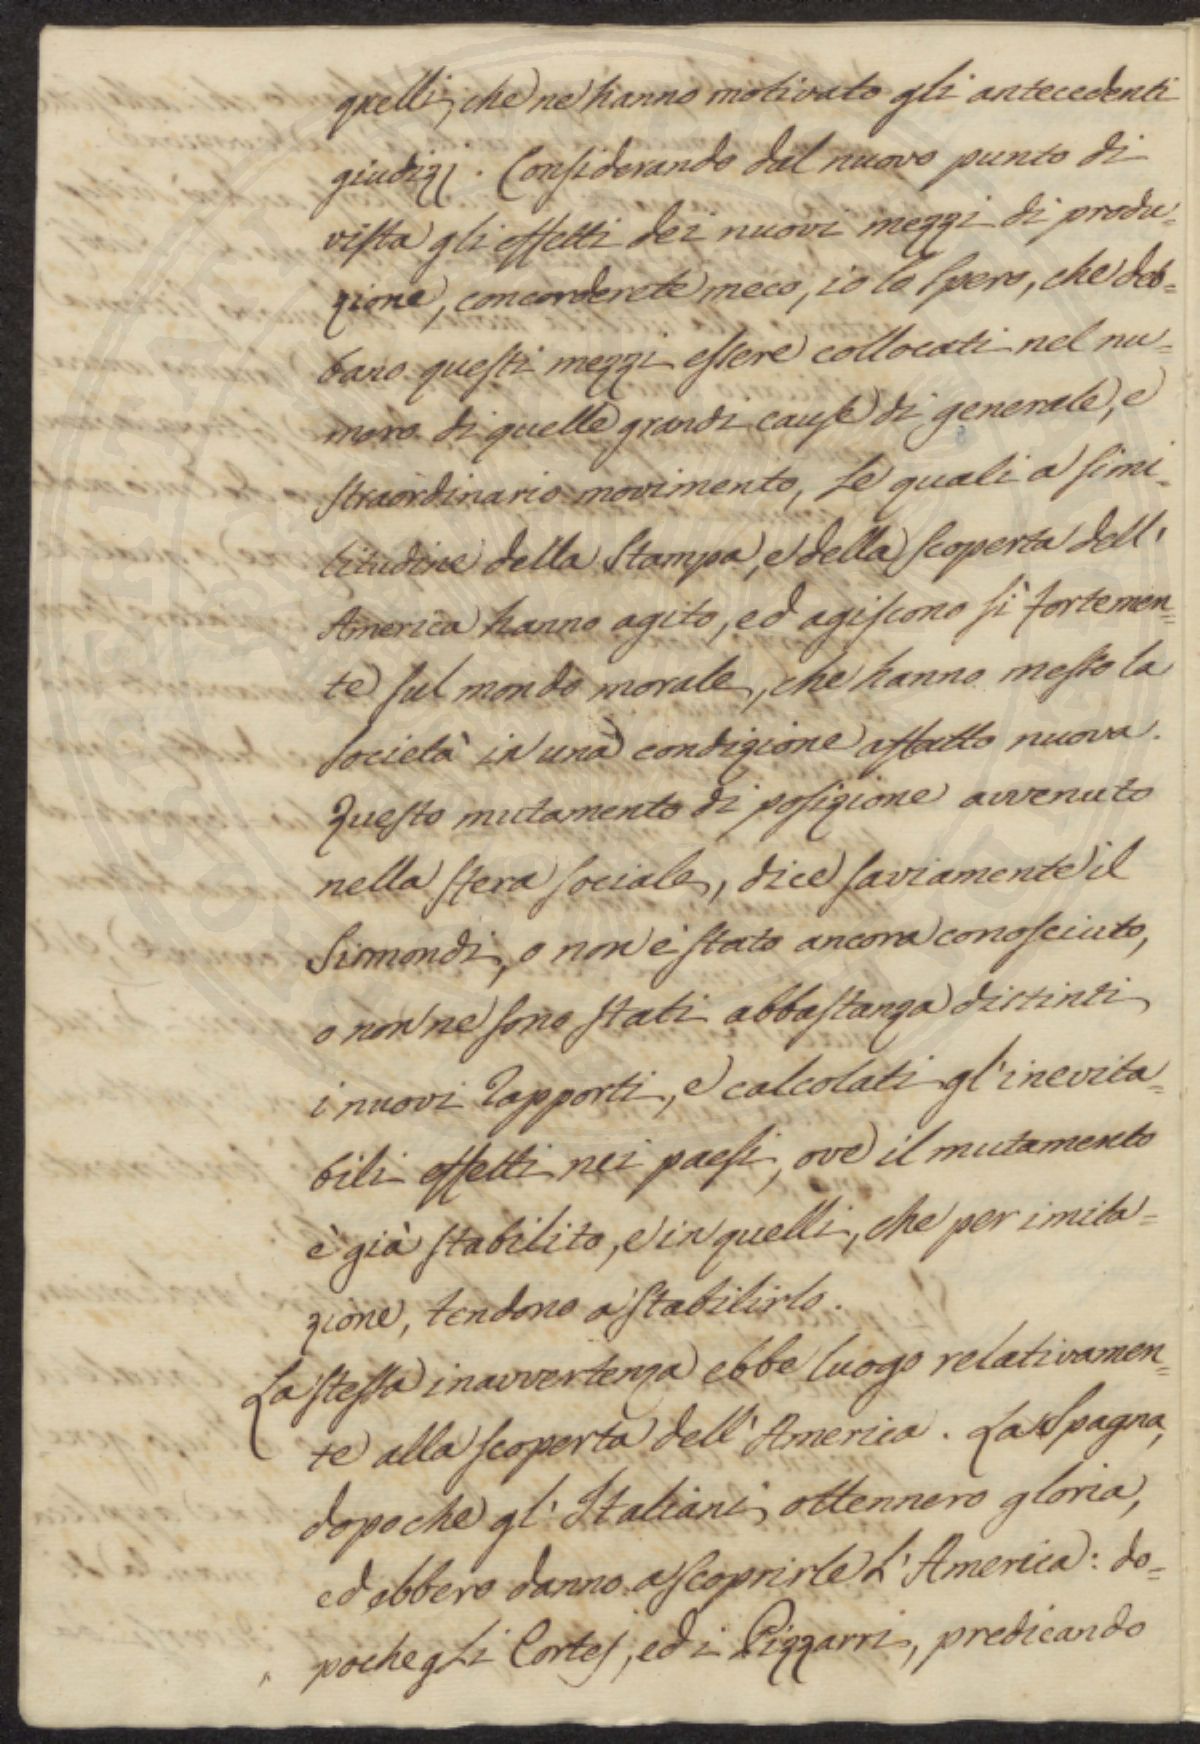 quelli, che ne hanno motivato gli antecedenti
giudizj. Considerando dal nuovo punto di
vista gli effetti dei nuovi mezzi di produ=
zione, concorderete meco, io lo spero, che deb=
bano questi mezzi essere collocati nel nu=
mero di quelle grandi cause di generale, e
straordinario movimento, le quali a simi=
litudine della Stampa, e della scoperta dell'
America hanno agito, ed agiscono sì fortemen=
te sul mondo morale, che hanno messo la
società in una condizione affatto nuova.
Questo mutamento di posizione avvenuto
nella sfera sociale, dice saviamente il
Sismondi, o non è stato ancora conosciuto,
o non ne sono stati abbastanza distinti
i nuovi rapporti, e calcolati gl'inevita=
bili effetti nei paesi, ove il mutamento
è già stabilito, e in quelli, che per imita=
zione, tendono a stabilirlo.
La stessa inavvertenza ebbe luogo relativamen=
te alla scoperta dell'America. La Spagna,
dopoche gl'Italiani ottennero gloria,
ed ebbero danno a scoprirle l'America: do=
poche gli Cortes, ed i Pizzarri, predicando